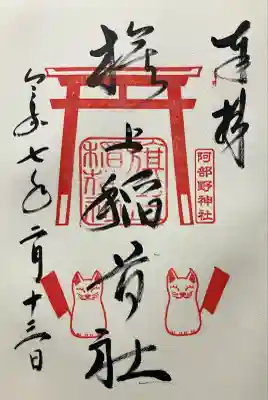 奉拝
阿部野神社
旗上稲荷社
令和七年二月十三日